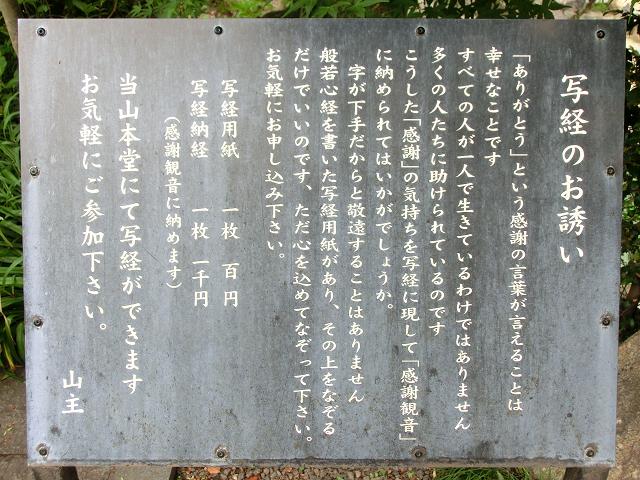 写経のお誘い
「ありがとう」という感謝の言葉が言えることは
幸せなことです
すべての人が一人で生きているわけではありません
多くの人たちに助けられているのです
こうした「感謝」の気持ちを写経に現して「感謝観音」
に納められてはいかがでしょうか。
字が下手だからと敬遠することはありません
般若心経を書いた写経用紙があり、その上をなぞる
だけでいいのです、ただ心を込めてなぞって下さい。
お気軽にお申し込み下さい。
写経用紙 一枚 百円
写経納経 一枚 一千円
（感謝観音に納めます）
当山本堂にて写経ができます
お気軽にご参加下さい。
山主